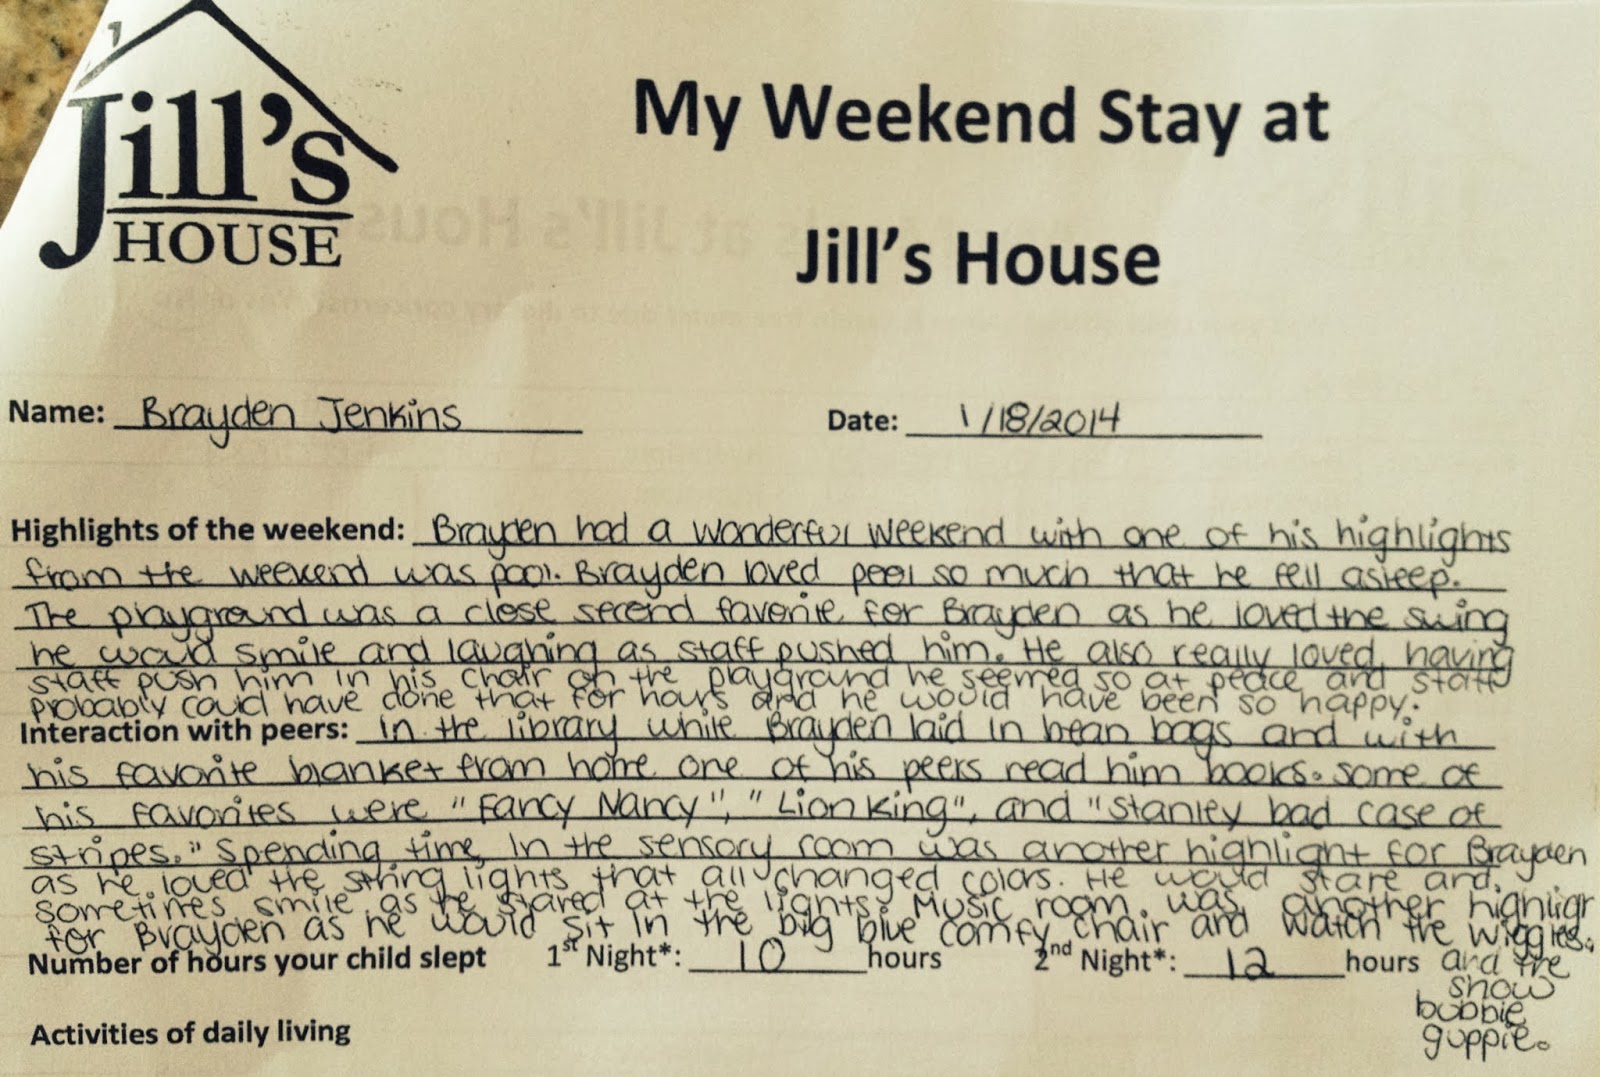 Jill's
HOUSE
My Weekend Stay at
Jill's House
Name: Brayden Jenkins
Date: 1/18/2014
Highlights of the weekend: Brayden had a wonderful weekend with one of his highlights
from the weekend was pool. Brayden loved pool so much that he fell asleep.
The playground was a close second favorite for Brayden as he loved the swing
he would smile and laughing as staff pushed him. He also really loved having
staff push him in his chair on the playground he seemed so at peace and staff
probably could have done that for hours and he would have been so happy.
Interaction with peers: In the library while Brayden laid in bean bags and with
his favorite blanket from home one of his peers read him books. some of
his favorites were "Fancy Nancy", "Lion King", and "Stanley bad case of
stripes." Spending time in the sensory room was another highlight for Brayden
as he loved the string lights that all changed colors. He would stare and
sometimes smile as he stared at the lights. Music room was another highligr
for Brayden as he would sit in the big blue comfy chair and watch the wiggles.
Number of hours your child slept 1st Night*: 10 hours 2nd Night*: 12 hours and the
show
bubbie
guppie.
Activities of daily living